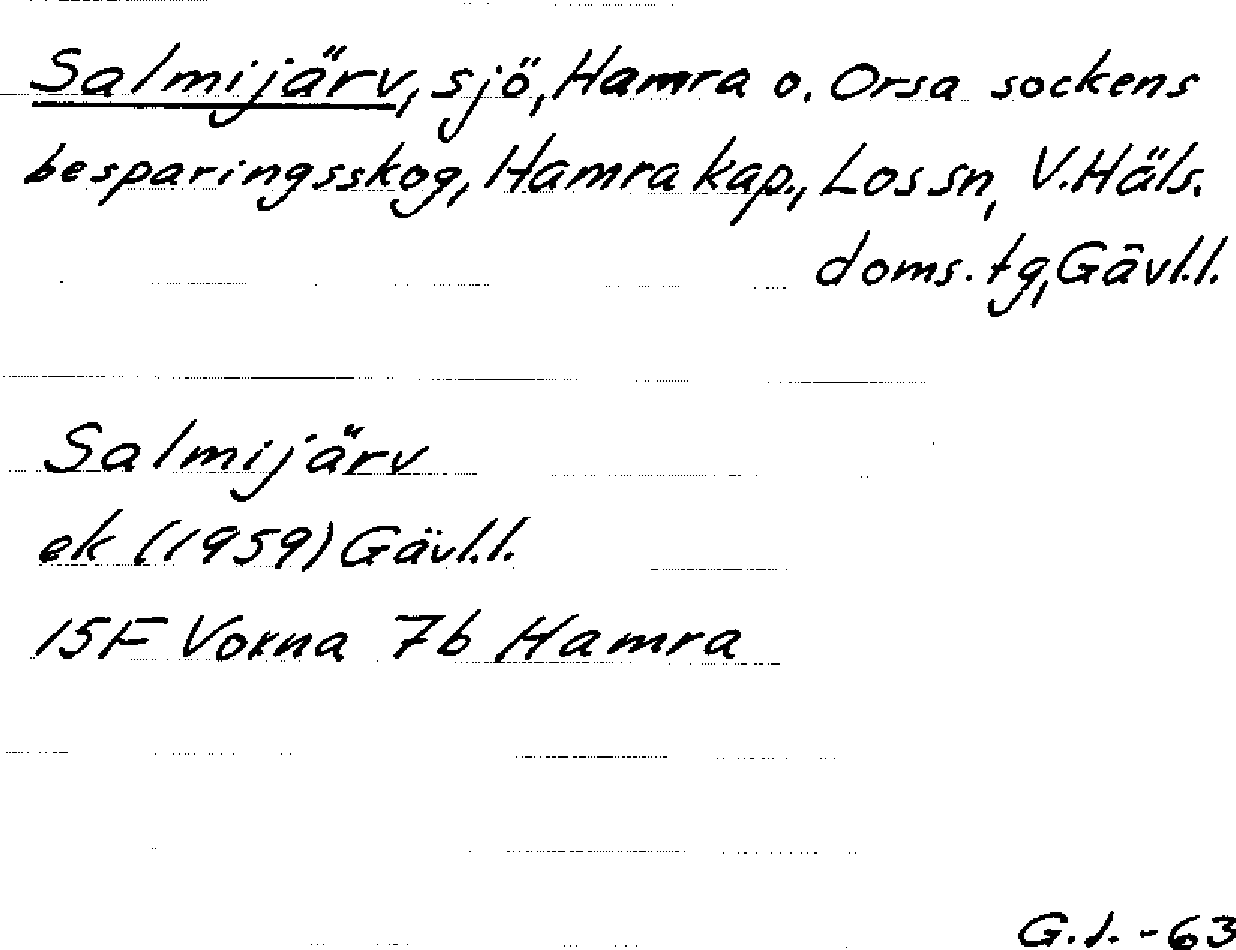 Salmijärv, sjö, Hamra o. Orsa sockens
besparingsskog, Hamra kap., Los sn, V. Häls.
doms. tg, Gävl.l.
Salmijärv
ek (1959) Gävl.l.
15F Voxna 7b Hamra
G.J. -63